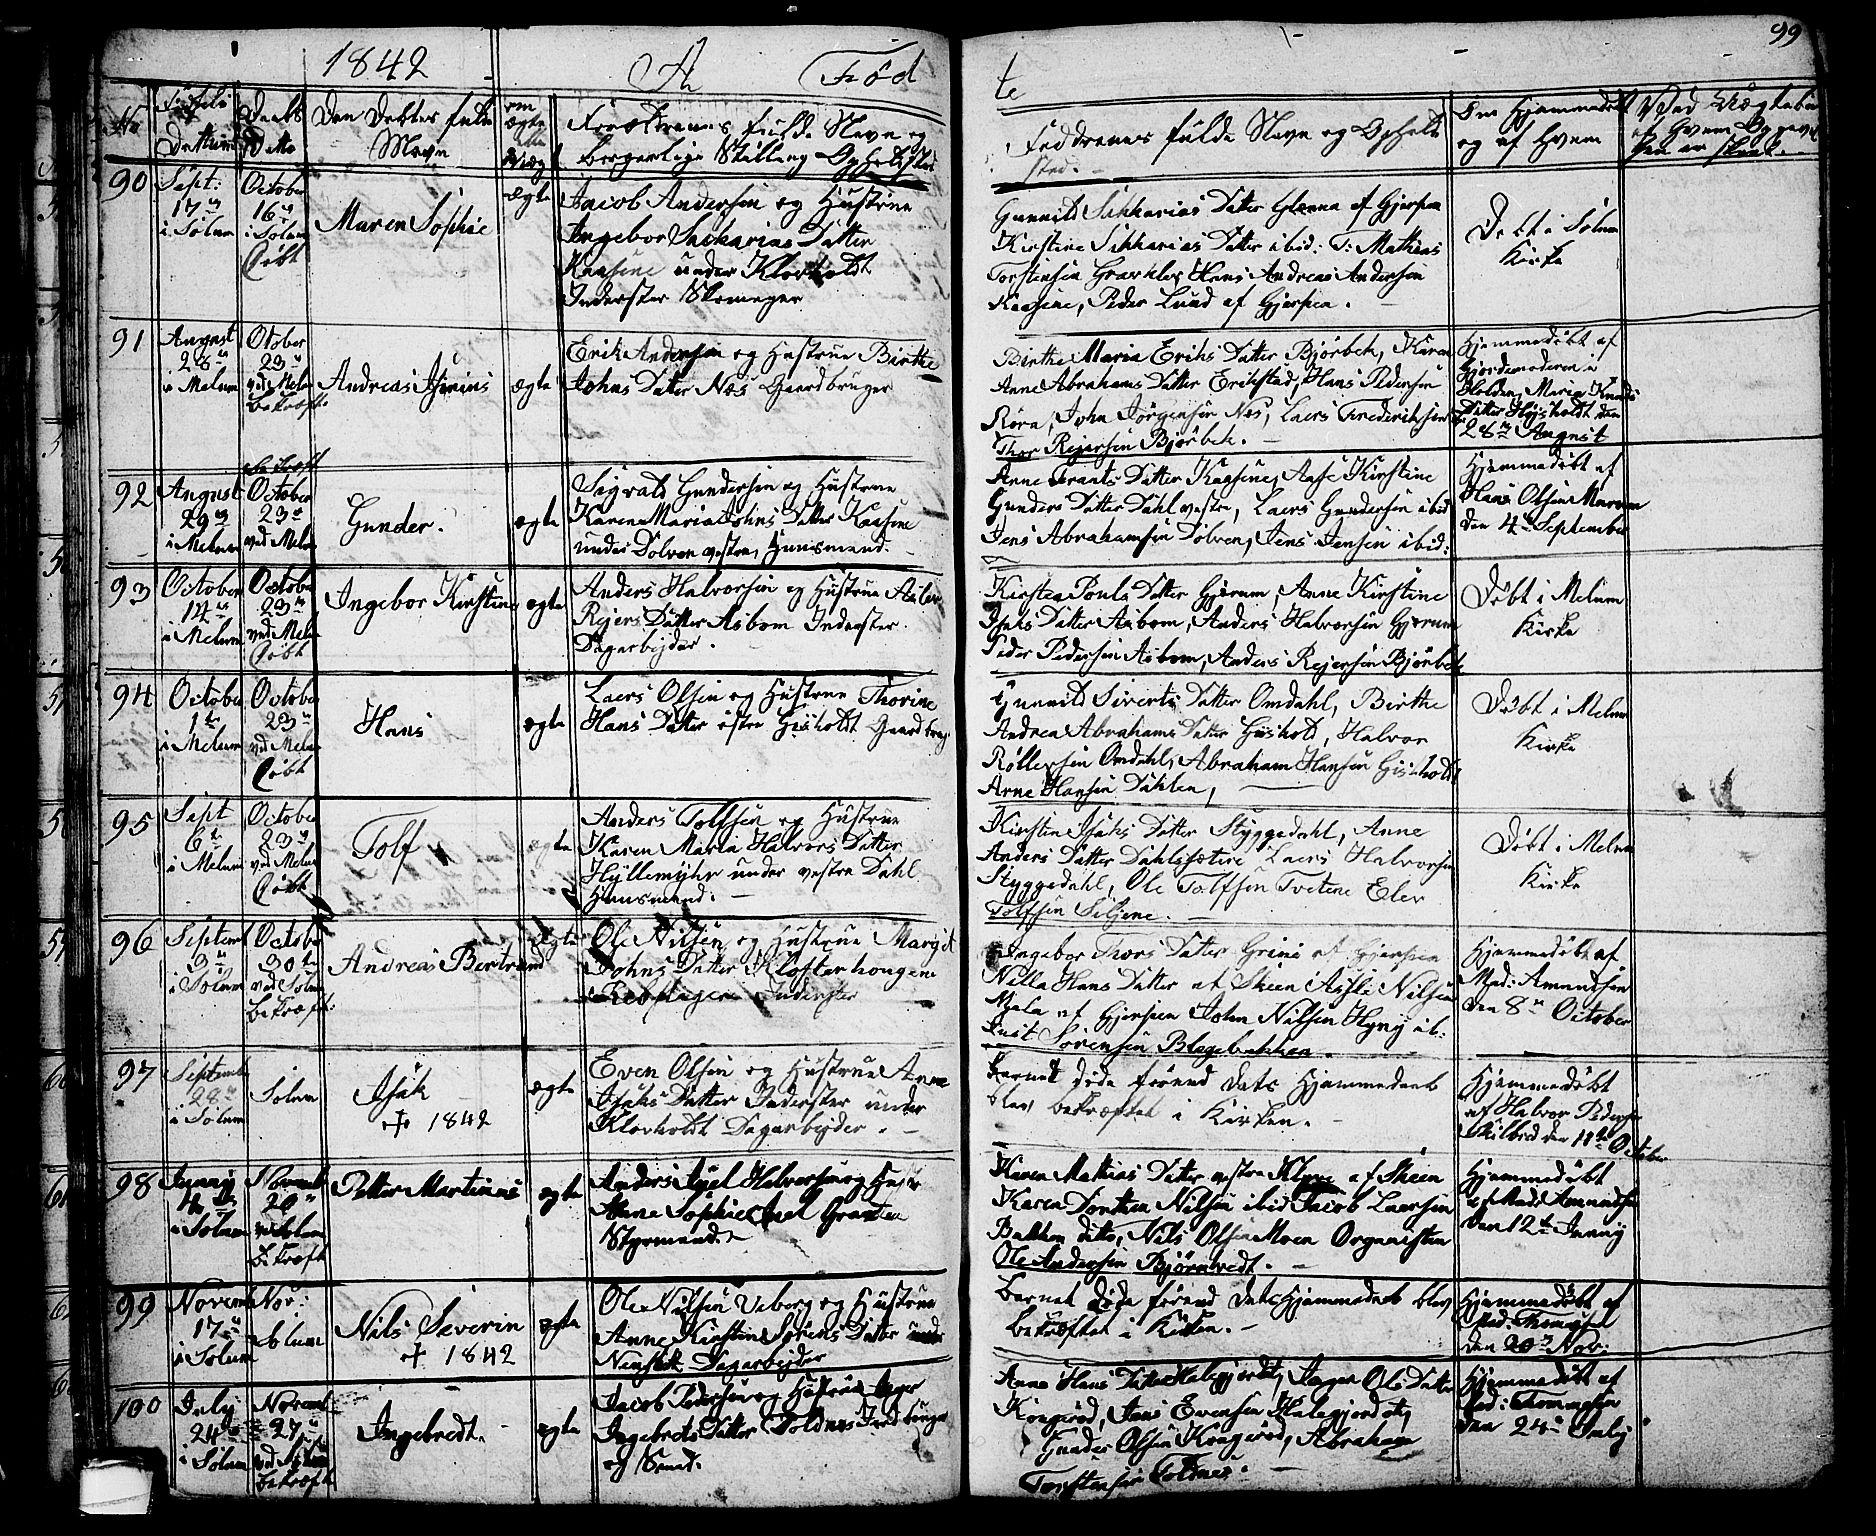 99
1842 A Fød te
No
Den Døbtes fulde Navn
om ægte eller uægte
Forældrenes fulde Navn og
borgerlige Stilling Opholdssted
Faddernes fulde Navn og Opholds
sted.
Om Hjemmedøbt
og af hvem
90
Sept:
17de
i Solum
October
16de
i Solum
Døbt
Maren Sophie
ægte
Jacob Andersen og Hustrue
Ingebor Sacharias Datter
Kaasene under Klovholdt
Inderster Skomager
Gunnild Sikkarias Datter Glenna af Gjerpen
Kirstine Sikkarias Datter ibid: T: Mathias
Torstensen Graveklev Hans Andreas Andersen
Kaasene, Peder Lund af Gjerpen.
Døbt i Solum
Kirke
91
August
28de
i Melum
Otober
23de
ved Melum
bekræft:
Andreas
ægte
Erik Andersen og Hustrue Birthe
Johns Datter Næs Gaardbruger
Birthe Maria Eriks Datter Bjørbek, Karen
Anne Abrahams Datter Erikstad, Hans Pedersen
Røra, John Jørgensen Næs, Laers Frederiksen
Thor Reiersen Bjørbek.
Hjemmedøbt af
Gjordemoderen i
Holden, Maria Knuds
Datter Høysholdt den
28de August
92
August
29de
i Melum
Bekræft
October
23de
ved Melum
Gunder.
ægte
Sigvald Gundersen og Hustrue
Karen Maria Johns Datter Kaasene
under Dolven vestre, Huusmand.
Anne Frants Datter Kaasene, Aase Kirstine
Gunders Datter Dahl vestre, Laers Gundersen ibid
Jens Abrahamsen Dolven, Jens Jensen ibid:
Hjemmedøbt af
Hans Olsen
den 4de September
93
October
14de
i Melum
October
23de
ved Melum
Døbt
Ingebor Kirstine
ægte
Anders Halvorsen og Hustrue
Reiers Datter Aasbom Inderster
Dagarbejder.
Kirsten Pouls Datter Gjerum, Anne Kirstine
Isaks Datter Aasbom, Anders Halvorsen Gjerum
Peder Pedersen Aasbom, Anders Reiersen Bjørbek
Døbt i Melum
Kirke
94
October
1te
i Melum
October
23de
ved Melum
Døbt
Hans
ægte
Laers Olsen og Hustrue Thorine
Hans Datter østre Gisholdt Gaardbrug
Gunnild Siverts Datter Omdahl, Birthe
Andrea Abrahams Datter Gisholdt, Halvor
Rollefsen Omdahl, Abraham Hansen Gisholdt
Arne Hansen Dahlen,
Døbt i Melum
Kirke
95
Sept
6te
i Melum
October
23de
ved Melum
Døbt
Tolf
ægte
Anders Tolfsen og Hustrue
Karen Maria Halvors Datter
Hyllemyhr under vestre Dahl
Huusmand.
Kirsten Isaks Datter Styggedahl, Anne
Anders Datter Dahlsætere Laers Halvorsen
Styggedahl, Ole Tolfsen Tvetene Elev
Tolfsen Siljene.
Døbt i Melum
Kirke
96
Septemb
3de
i Solum
Octobe
30te
ved Solum
bekræft:
Andreas Bertrand
ægte
Ole Nilsen og Hustrue Margit
Johns Datter Klosterhougen
Rebslager Inderster
Ingebor Thors Datter Grini af Gjerpen
Nilla Hans Datter af Skeen Nilsen
Mæla af Gjerpen John Nilsen Hyny ib:
Knut Sørensen Blegebakken.
Hjemmedøbt af
Mad: Amundsen
den 8de October
97
Septemb
28de
i Solum
Solum
Isak
✝ 1842
ægte
Even Olsen og Hustrue Anne
Isaks Datter Inderster under
Klovholdt Dagarbejder.
Barnet døde førend dets Hjemmedaab
blev bekræftet i Kirken.
Hjemmedøbt
af Halvor Pedersen
den 11te October
98
Juny
4de
i Solum
Novemb
20de
ved Solum
bekræft
Petter Martinus
ægte
Anders Axel Halvorsen og Hustr
Anne Sophie Axel
Styrmand.
Karen Mathias Datter vestre af Skeen
Karen Dorthea Nilsen ibid Jacob Laersen
Bakken ditto, Nils Olsen Moen Organisten
Ole Andersen Bjørnvedt.
Hjemmedøbt
af Mad: Amundsen
den 12te Juny
99
Novemb
17de
i Solum
Nov:
Solum
Nils Severin
✝ 1842
ægte
Ole Nilsen Veborg og Hustrue
Anne Kirstine Sørens Datter under
Dagarbejder
Barnet døde førend dets Hjemmedaab blev
bekræftet i Kirken.
Hjemmedøbt af
Mad: Thomesen
den 20de Nov:
100
July
24de
i Solum
Novemb
27de
ved Solum
bekræft
Ingebredt.
ægte
Jacob Pedersen og Hustrue Inger
Ingebrets Datter Toldnes Jordbruger
og Smed.
Anne Hans Datter Halegjordt, Inger Ols Datter
Kongerød, Jens Evensen Halegjordet,
Gunder Olsen Kongerød, Abraham
Torstensen Toldnes.
Hjemmedøbt af
Mad: Tommesen
den 24de July